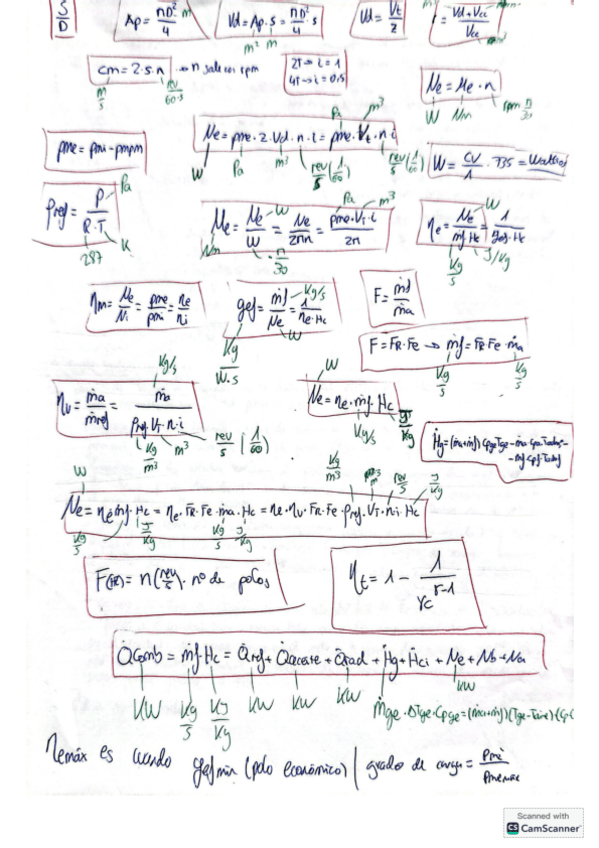 S/D
Ap = πD²/4 m
Vd = Ap·s = πD²/4 · s
m² m
Vd = Vt/z
= Vd+Vcc/Vcc
cm = 2·s·n → n sale en rpm
m/s rev/60·s
2T → i = 1
4T → i = 0.5
Ne = Me · n
W Nm rpm π/30
pme = pmi - pmpm
Pa m³
Ne = pme·z·Vd·n·i = pme·Vt·n·i
W Pa m³ rev/s (1/60) rev/s (1/60)
W = CV/1 · 735 = Wattios
ρref = P/R·T
Pa
287 K
Pa m³
Me = Ne/W = Ne/2πn = pme·Vt·i/2π
W
Nm · π/30
ηe = Ne/ṁf·Hc = 1/gef·Hc
W
Kg/s J/Kg
ηm = Ne/Ni = pme/pmi = ηe/ηi
gef = ṁf/Ne = 1/ηe·Hc
Kg/s
Kg/W·s W
F = ṁf/ṁa
F = FR·Fe → ṁf = FR·Fe·ṁa
Kg/s Kg/s
Kg/s
ηv = ṁa/ṁref = ṁa/ρref·VT·n·i
Kg/m³ m³ rev/s (1/60)
W
Ne = ηe·ṁf·Hc
Kg/s J/Kg
Ḣg = (ṁa+ṁf)·Cpge·Tge - ṁa·Cpa·Tadm -
- ṁf·Cpf·Tadm
W Kg/m³ m³ rev/s J/Kg
Ne = ηe·ṁf·Hc = ηe·FR·Fe·ṁa·Hc = ηe·ηv·FR·Fe·ρref·VT·n·i·Hc
Kg/s J/Kg Kg/s J/Kg
F(Hz) = n(rev/s) · nº de polos
ηt = 1 - 1/rc^γ-1
Q̇comb = ṁf·Hc = Q̇ref + Q̇aceite + Q̇rad + Ḣg + Ḣci + Ne +
KW Kg/s KJ/Kg KW KW KW KW
ṁge·ΔTge·Cpge = (ṁa+ṁf)(Tge-Taire)·(Cp
ηemáx es cuando gef min (polo económico) | grados de carga = Pme/Pmemax
Scanned with
CS CamScanner